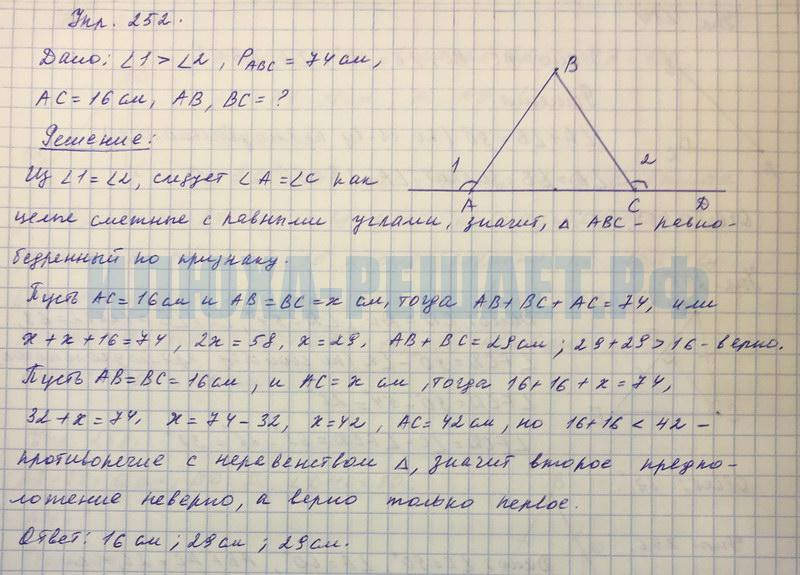 Упр. 252.
Дано: ∠1 > ∠2, P_ABC = 74 см,
AC = 16 см, AB, BC = ?
Решение:
Из ∠1 = ∠2, следует ∠A = ∠C как
целые смежные с равными углами, значит, △ ABC - равно-
бедренный по признаку.
Пусть AC = 16 см и AB = BC = x см, тогда AB + BC + AC = 74, или
x + x + 16 = 74, 2x = 58, x = 29, AB + BC = 29 см; 29 + 29 > 16 - верно.
Пусть AB = BC = 16 см, и AC = x см, тогда 16 + 16 + x = 74,
32 + x = 74, x = 74 - 32, x = 42, AC = 42 см, но 16 + 16 < 42 -
противоречие с неравенством △, значит второе предпо-
ложение неверно, а верно только первое.
Ответ: 16 см; 29 см; 29 см.
B
1
2
A
C
D